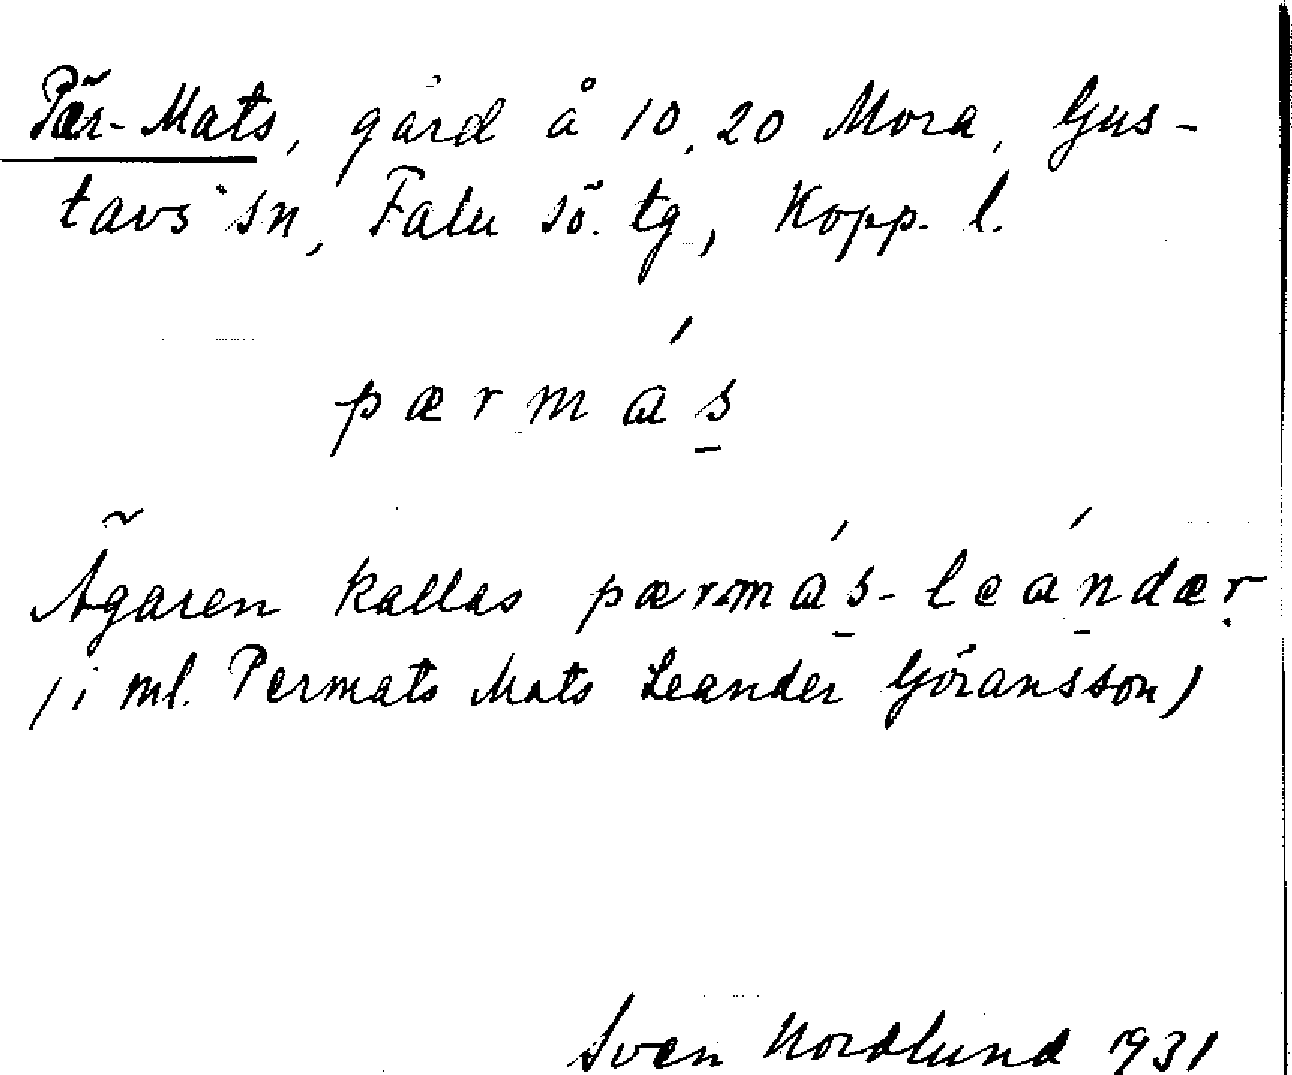 Pär-Mats, gård å 10, 20 Mora, Gus-
tavs sn, Falu sö. tg, Kopp. l.
pærmás
Ägaren kallas pærmás-leándær
(i ml. Permats Mats Leander Göransson)
Sven Nordlund 1931